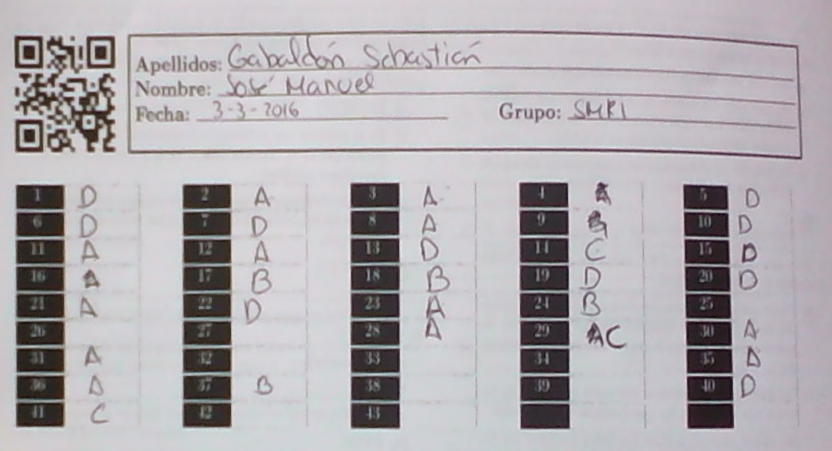 Apellidos: Gabaldón Sebastián
Nombre: José Manuel
Fecha: 3-3-2016 Grupo: SMR1
1 D 2 A 3 A 4 A 5 D
6 D 7 D 8 A 9 B 10 D
11 A 12 A 13 D 14 C 15 D
16 A 17 B 18 B 19 D 20 D
21 A 22 D 23 A 24 B 25
26 27 28 A 29 C 30 A
31 A 32 33 34 35 D
36 D 37 B 38 39 40 D
41 C 42 43